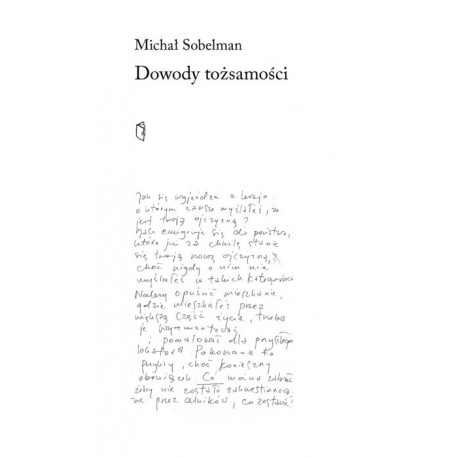 Michał Sobelman
Dowody tożsamości
Jak się wyjeżdża z kraju,
o którym zawsze myślałeś, że
jest twoją ojczyzną?
Jak emigruje się do państwa,
które już za chwilę stanie
się twoją nową ojczyzną,
choć nigdy o nim nie
myślałeś w takich kategoriach
Należy opuścić mieszkanie,
gdzie mieszkałeś przez
większą część życia, trzeba
je wyremontować
i pomalować dla przyszłego
lokatora. Pakowanie to
przykry, choć konieczny
obowiązek. Co można zabrać
żeby nie zostało zakwestionowa-
ne przez celników, co zostawić